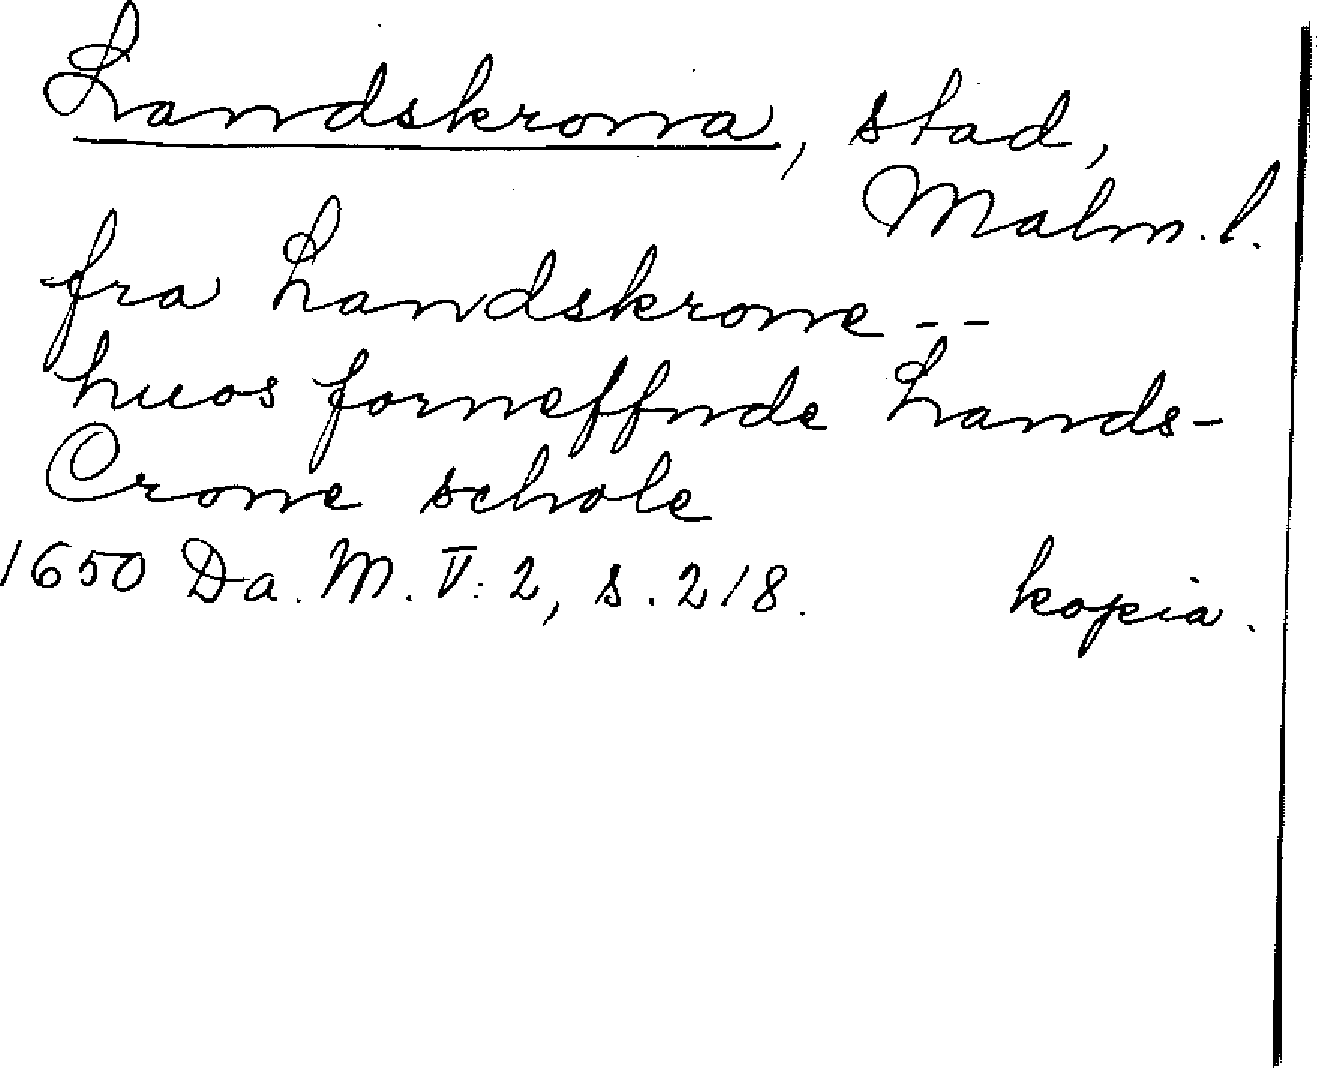 Landskrona, stad,
Malm. l.
fra Landskrone --
huos forneffnde Lands-
Crone schole
1650 Da. M. V: 2, s. 218. kopia.